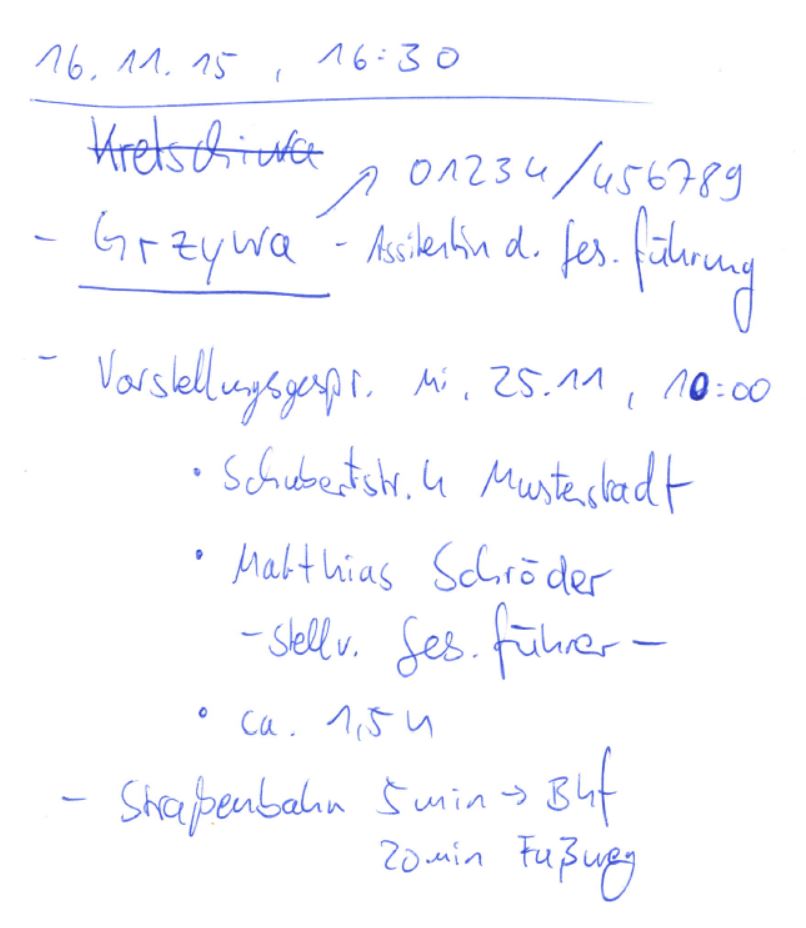 16.11.15, 16:30
Kretschiwa
↗ 01234/456789
- Grzywa - Assistentin d. Ges.führung
- Vorstellungsgespr. Mi, 25.11, 10:00
• Schubertstr. 4 Musterstadt
• Matthias Schröder
- Stellv. Ges.führer -
• ca. 1,5 h
- Straßenbahn 5 min → Bhf
20 min Fußweg